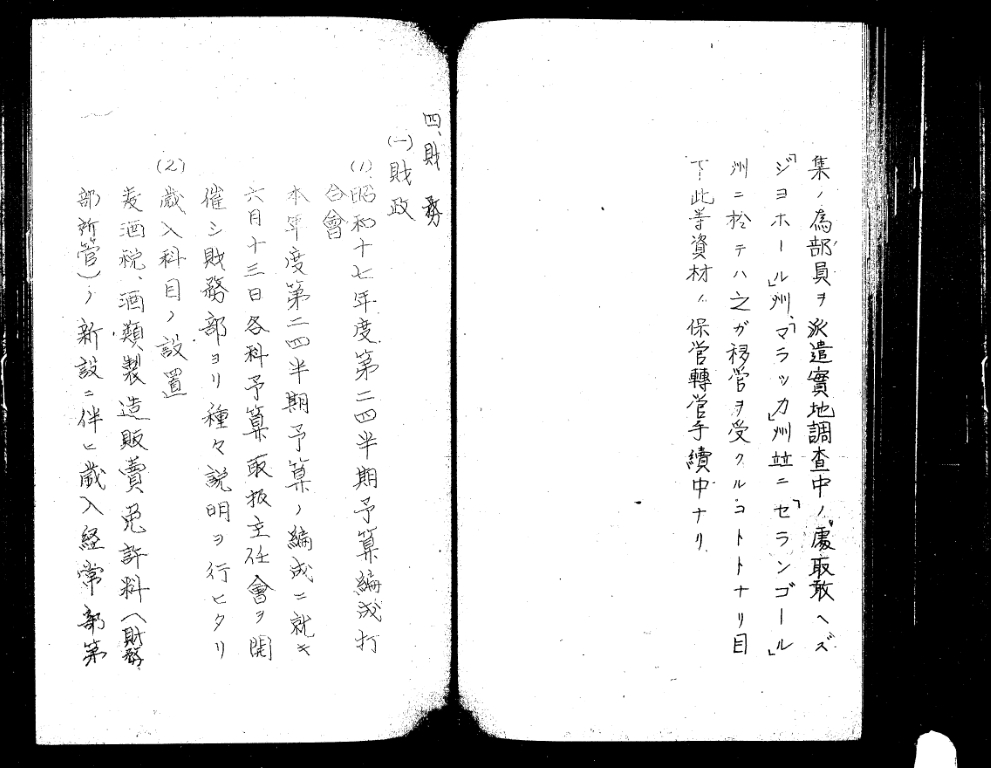 集ノ為部員ヲ派遣實地調査中ノ處取敢ヘズ
「ジヨホール」州、「マラッカ」州並ニ「セランゴール」
州ニ於テハ之ガ移管ヲ受クルコトトナリ目
下此等資材ノ保管轉管手續中ナリ
四、財務
(一)財政
(1)昭和十七年度第二四半期予算編成打
合會
本年度第二四半期予算ノ編成ニ就キ
六月十三日各科予算取扱主任會ヲ開
催シ財務部ヨリ種々説明ヲ行ヒタリ
(2)歳入科目ノ設置
麦酒税、酒類製造販賣免許料(財務
部所管)ノ新設ニ伴ヒ歳入経常部第